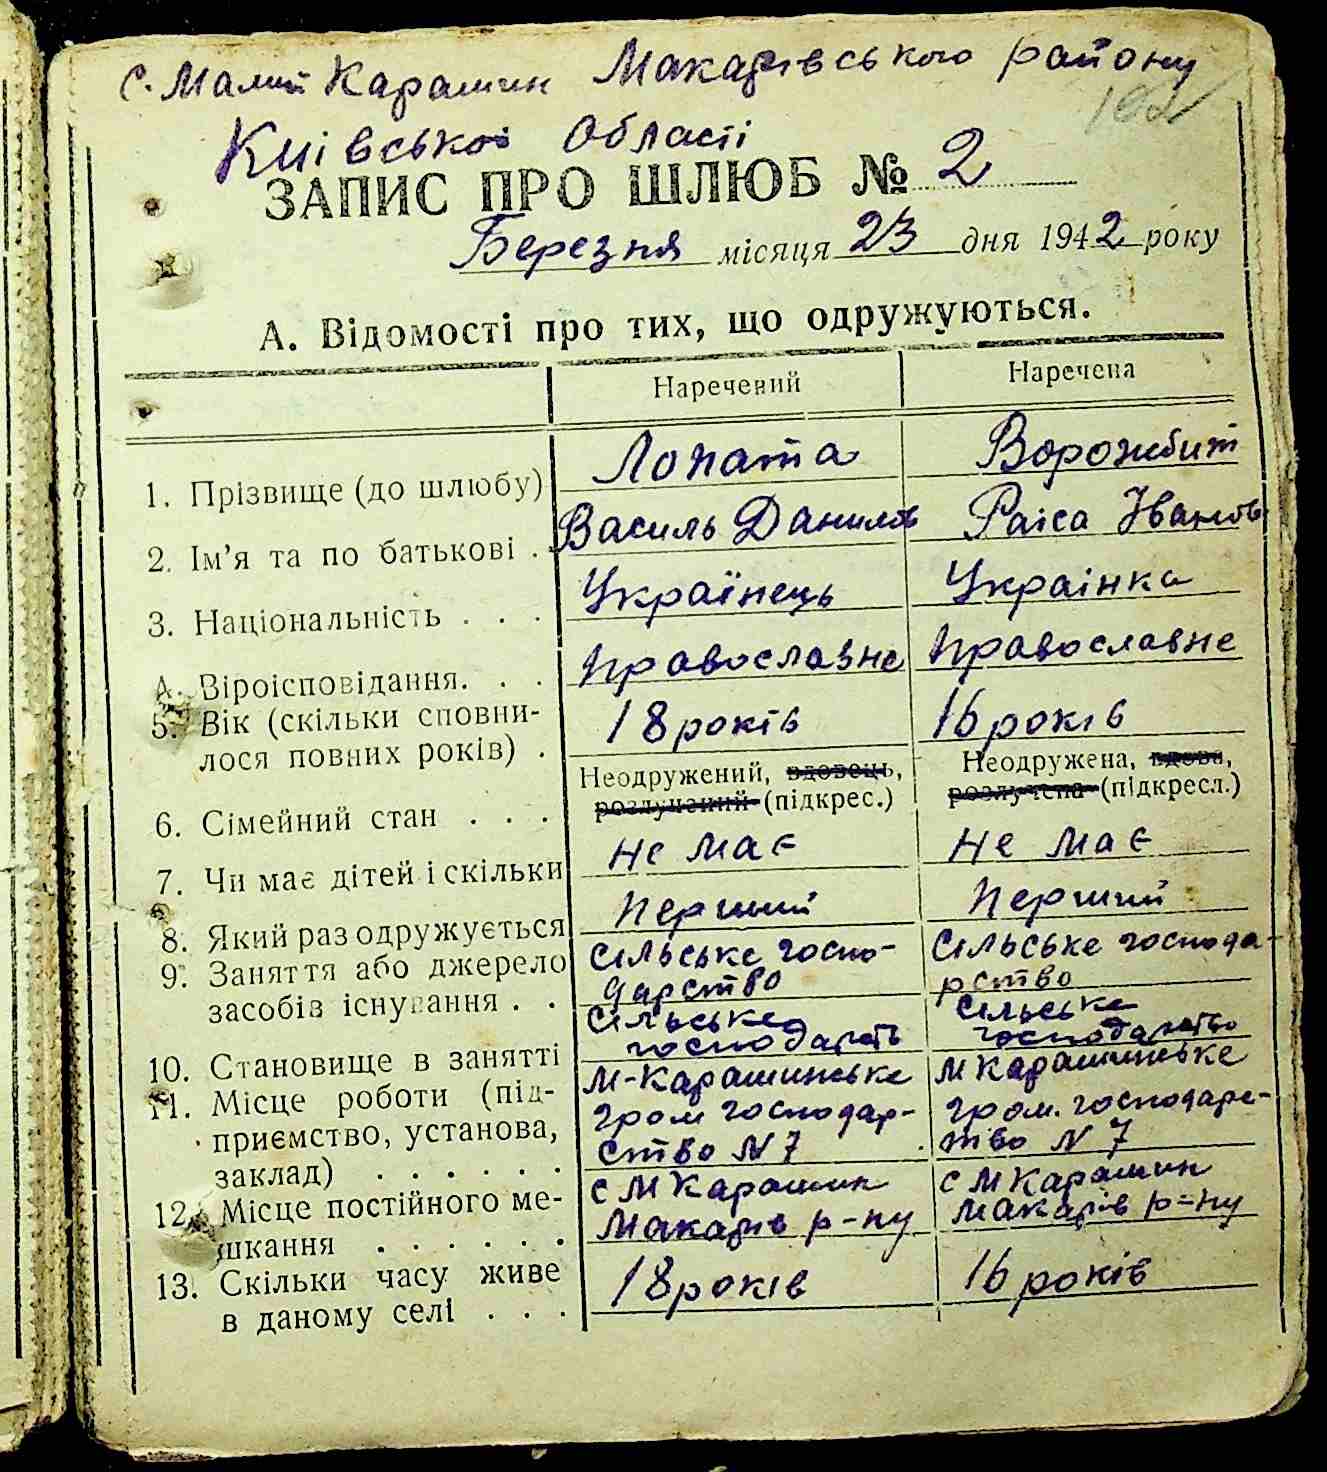 с. Малий Карашин Макарівського району
Київської області
102
ЗАПИС ПРО ШЛЮБ № 2
Березня місяця 23 дня 1942 року
А. Відомості про тих, що одружуються.
Наречений Наречена
1. Прізвище (до шлюбу) Лопата Ворожбит
2. Ім'я та по батькові . Василь Данилов Раіса Іванов
3. Національність . . . Українець Украінка
4. Віроісповідання. . . православне православне
5. Вік (скільки сповни-
лося повних років) . 18 років 16 років
6. Сімейний стан . . . Неодружений, вдовець, Неодружена, вдова,
розлучений (підкрес.) розлучена (підкресл.)
7. Чи має дітей і скільки не має не має
8. Який раз одружується перший перший
9. Заняття або джерело сільське госпо- сільське господа-
засобів існування . . дарство рство
10. Становище в занятті сільське сільське
господарств господарство
11. Місце роботи (під- М-Карашинське М Карашинське
приємство, установа, гром господар- гром. господарс-
заклад) . . . . . . ство N 7 тво N 7
12. Місце постійного ме- с М Карашин с М Карашин
шкання . . . . . . Макарів р-ну Макарів р-ну
13. Скільки часу живе
в даному селі . . . 18 років 16 років